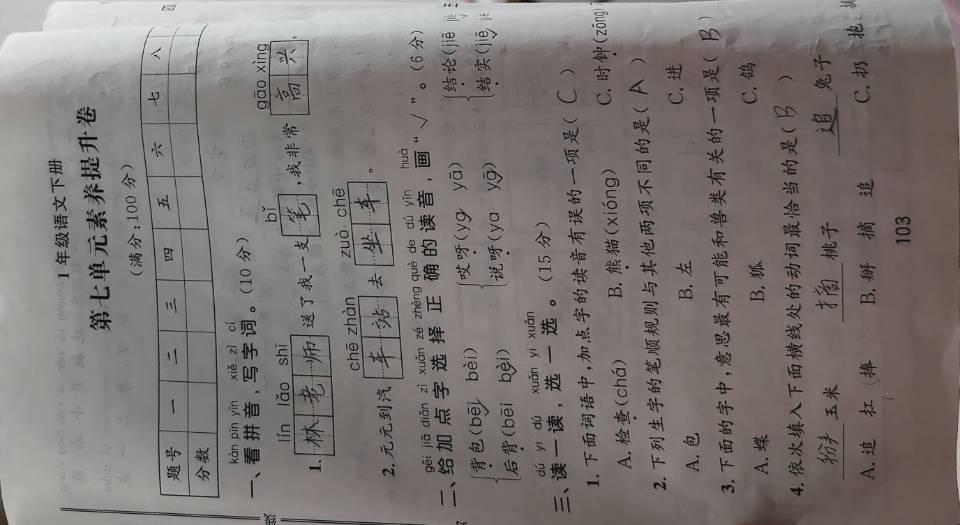 1年级语文下册
第七单元素养提升卷
(满分:100分)
题号 一 二 三 四 五 六 七 八
分数
kàn pīn yīn xiě zì cí
一、看拼音,写字词。(10分)
lín lǎo shī bǐ gāo xìng
1. 林老师 送了我一支 笔 ,我非常 高兴 。
chē zhàn zuò chē
2. 元元到汽 车站 去 坐车 。
gěi jiā diǎn zì xuǎn zé zhèng què de dú yīn huà
二、给加点字选择正确的读音,画“√”。(6分)
背包(bēi bèi) 哎呀(yɑ yā) 结论(jiē
后背(bēi bèi) 说呀(yɑ yā) 结实(jiē
dú yi dú xuǎn yi xuǎn
三、读一读,选一选。(15分)
1. 下面词语中,加点字的读音有误的一项是( C )
A. 检查(chá) B. 熊猫(xióng) C. 时钟(zōng)
2. 下列生字的笔顺规则与其他两项不同的是( A )
A. 包 B. 左 C. 进
3. 下面的字中,意思最有可能和兽类有关的一项是( B )
A. 蝶 B. 狐 C. 鸽
4. 依次填入下面横线处的动词最恰当的是( B )
掰 玉米 摘 桃子 追 兔子
A. 追 扛 捧 B. 掰 摘 追 C. 扔 抱
103